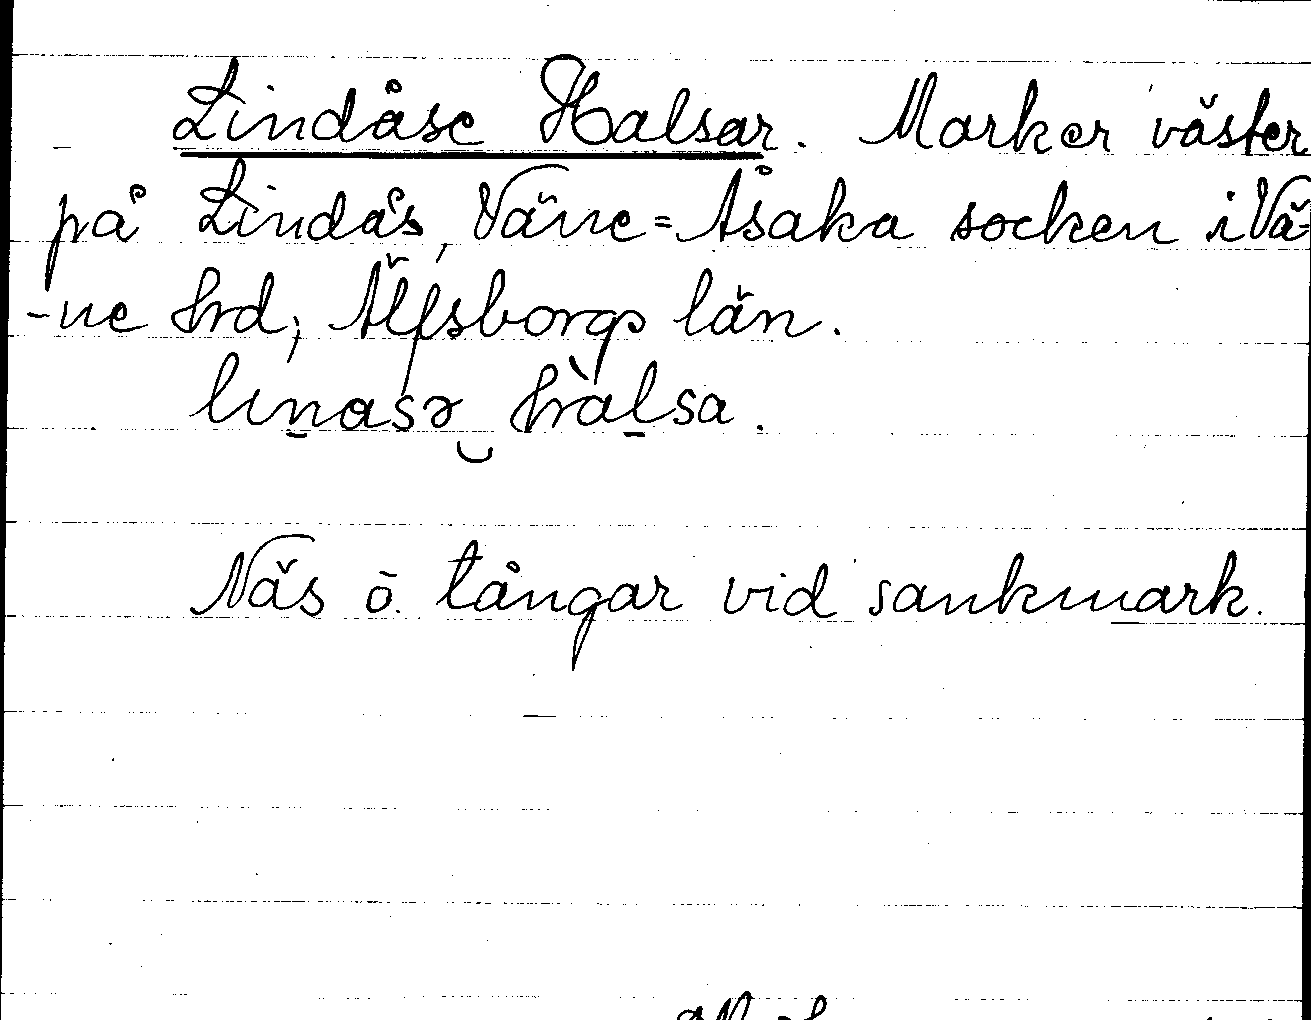 Lindåse Halsar. Marker väster
på Lindås, Väne=Åsaka socken i Vä=
-ne hrd, Älfsborgs län.
lınasə hàlsa.
Näs o. tångar vid sankmark.